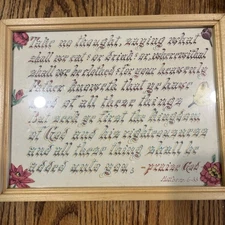 Take no thought, saying what
shall we eat? or drink? or, wherewithal
shall we be clothed? for your heavenly
Father knoweth that ye have
need of all these things
But seek ye first the kingdom
of God and his righteousness
and all these thing shall be
added unto you; - praise God